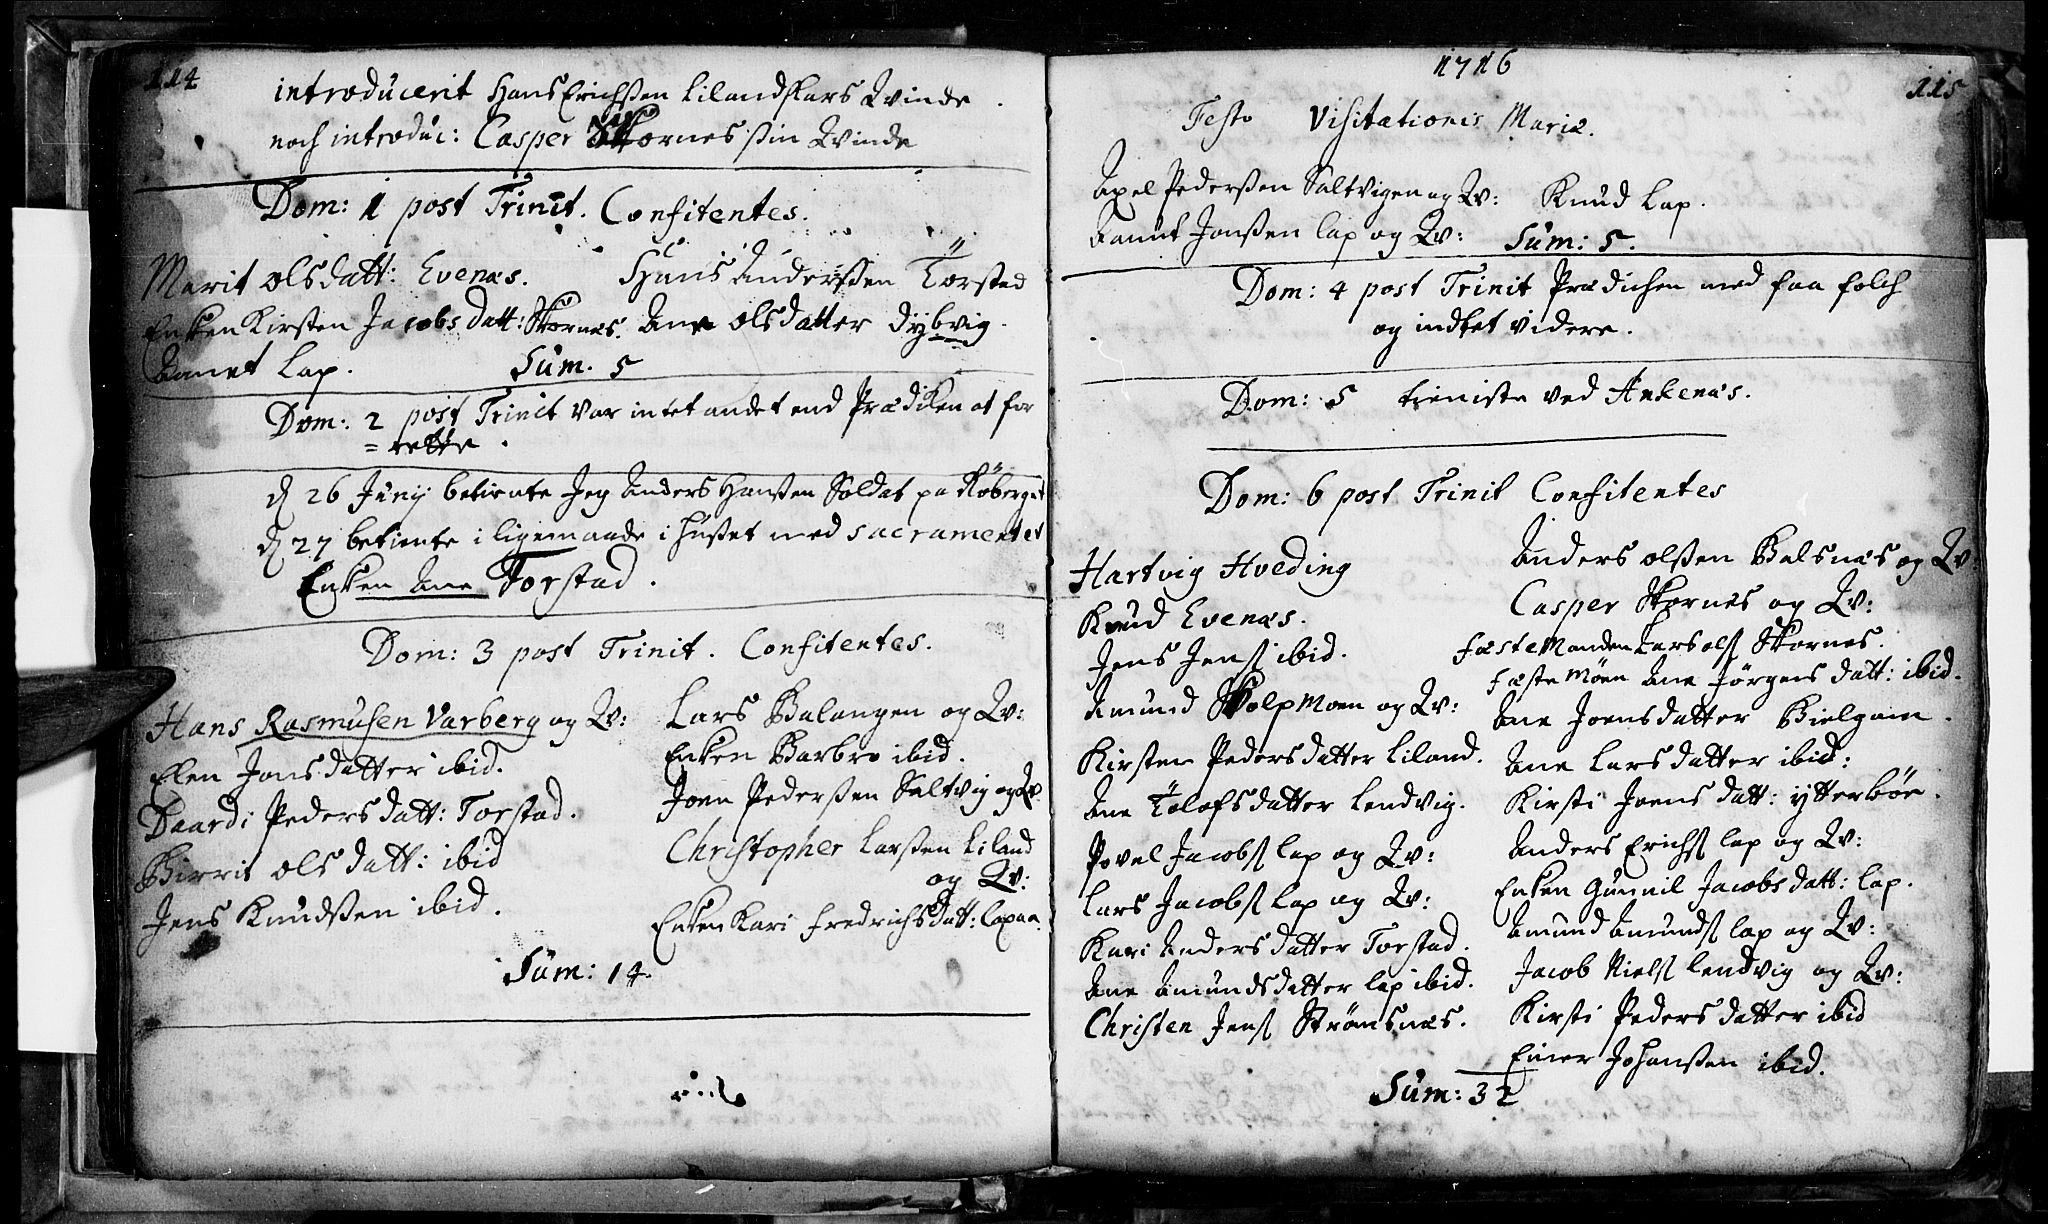 114
introducerit Hans Erichssen Lilandskars Qvinde.
noch introduc: Casper Skornes sin Qvinde
Dom: 1 post Trinit. Confitentes.
Marit olsdatt: Evenæs.
Enken Kirsten Jacobs datt: Skornæs.
Lap.
Hans Anderssen Torstad
Ane olsdatter dybvig.
Sum. 5
Dom: 2 post Trinit var intet andet end Prædiken at for
=rette.
d 26 Junij betiente Jeg Anders Hanssen Soldat pa
d 27 betiente i ligemaade i Huset med sacramentet
Enken Ane Torstad.
Dom: 3 post Trinit. Confitentes.
Hans Rasmusen Varberg og Qv:
Elen Jons datter ibid.
Daardi Peders datt: Torstad.
Birrit ols datt: ibid
Jens Knudssen ibid.
Lars Balangen og Qv:
Enken Barbro ibid.
Joen Pederssen Saltvig og Qv
Christopher Larssen Liland
og Qv:
Enken Kari fredrichsdatt: Lapaa.
Sum: 14.
1716
115
Festo Visitationis Mariæ.
Axel Pederssen Saltvigen og Qv: Knud Lap.
Jonssen lap og Qv: Sum: 5.
Dom: 4 post Trinit Prædichen med faa folch
og indtet videre.
Dom: 5 tieniste ved Ankenæs.
Dom: 6 post Trinit Confitentes
Hartvig Hveding
Knud Evenæs.
Jens Jens ibid.
Amund Skolpmoen og Qv:
Kirsten Pedersdatter Liland.
Ane Tolofsdatter Lendvig.
Povel Jacobs lap og Qv:
Lars Jacobs Lap og Qv:
Kari Anders datter Torstad.
Ane Amundsdatter lap ibid.
Christen Jens Strømsnæs.
Anders olssen Balsnæs og Qv:
Casper Skornes og Qv:
fæste Manden Lars ols Skornæs.
fæste Møen Ane Jørgens datt: ibid.
Ane Joensdatter Bielgam.
Ane Larsdatter ibid:
Kirsti Joens datt: ytterbøe.
Anders Erichs lap og Qv:
Enken Gunnil Jacobsdatt: lap.
Amund Amunds lap og Qv:
Jacob Niels lendvig og Qv:
Kirsti Peders datter ibid
Einer Johanssen ibid.
Sum: 32